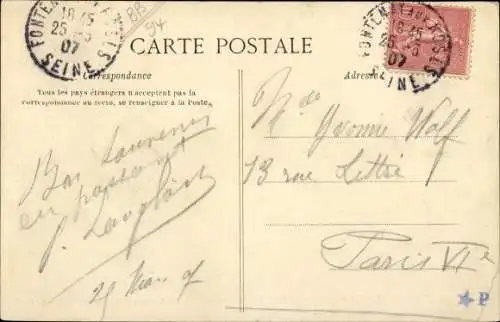 FONTENAY-SOUS-BOIS
18-15
25 -3
07
SEINE
BB
94
CARTE POSTALE
Correspondance
Adresse
Tous les pays étrangers n'acceptent pas la
correspondance au recto, se renseigner à la Poste.
Bon Souvenir
en passant
P. Langlois
25 Mars 07
Mlle Yvonne Wolf
13 rue Littré
Paris VIe
FONTENAY-SOUS-BOIS
18-15
25 -3
07
SEINE
P